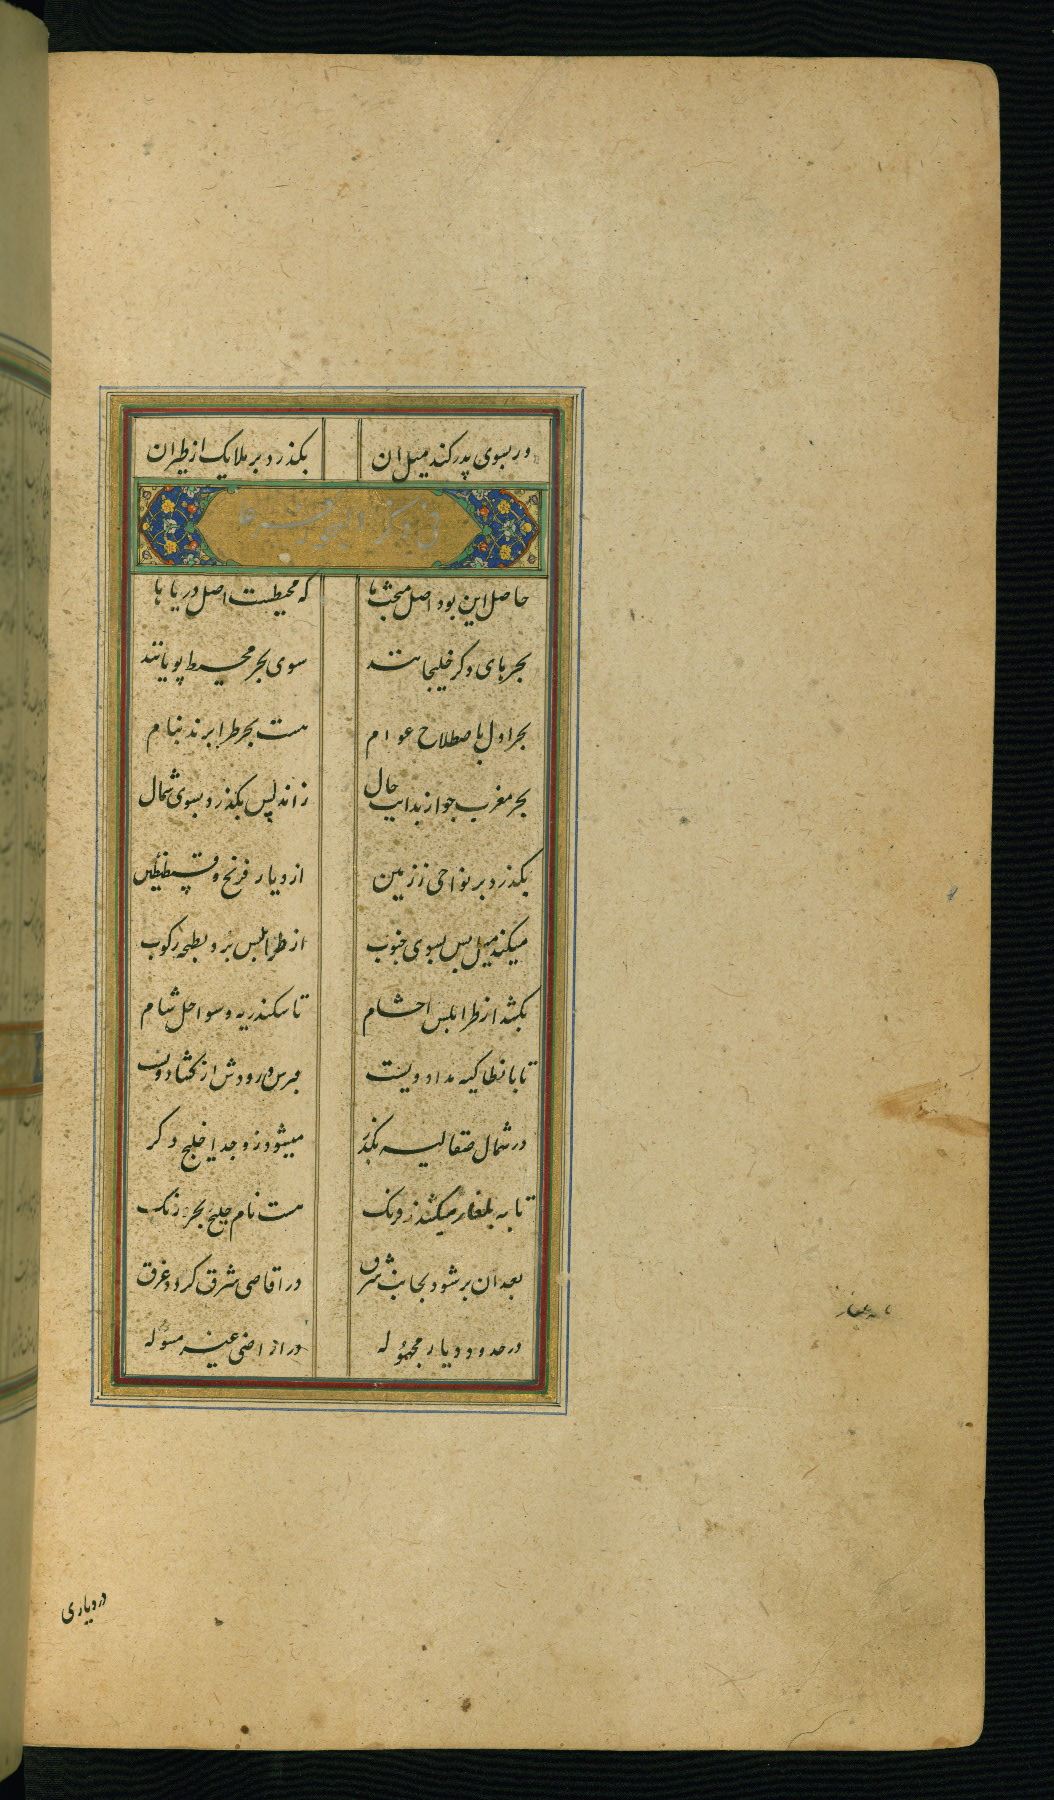 ور بسوی پدر کند میل ان بکذرد بر ملایک از طیران
فی ذکر البحور
حاصل این بود اصل مبحث ها که محیطست اصل دریا ها
بحرهای دکر خلیجانند سوی بحر محیط پویانند
بحر اول باصطلاح عوام هست بحر طرابزند بنام
بحر مغرب جو از بدایت حال زاندلس بکذرد بسوی شمال
بکذرد بر نواحی زرمین از دیار فرنج و قسطنطین
میکند میل پس بسوی جنوب از طرابلس بر و بطحه رکوب
بکشد از طرابلس احشام تا سکندریه و سواحل شام
تا بانطاکیه مداد ویست
در شمال صقالیه بکذر میشود زو جدا خلیج دکر
تا به بلغار میکشد ز فرنک هست نام خلیج بحر ورنک
بعد ان بر شود بجانب شرق در اقاصی شرق کردد غرق
در حدود دیار مجهوله در اراضی غیر مسؤله
در دیاری